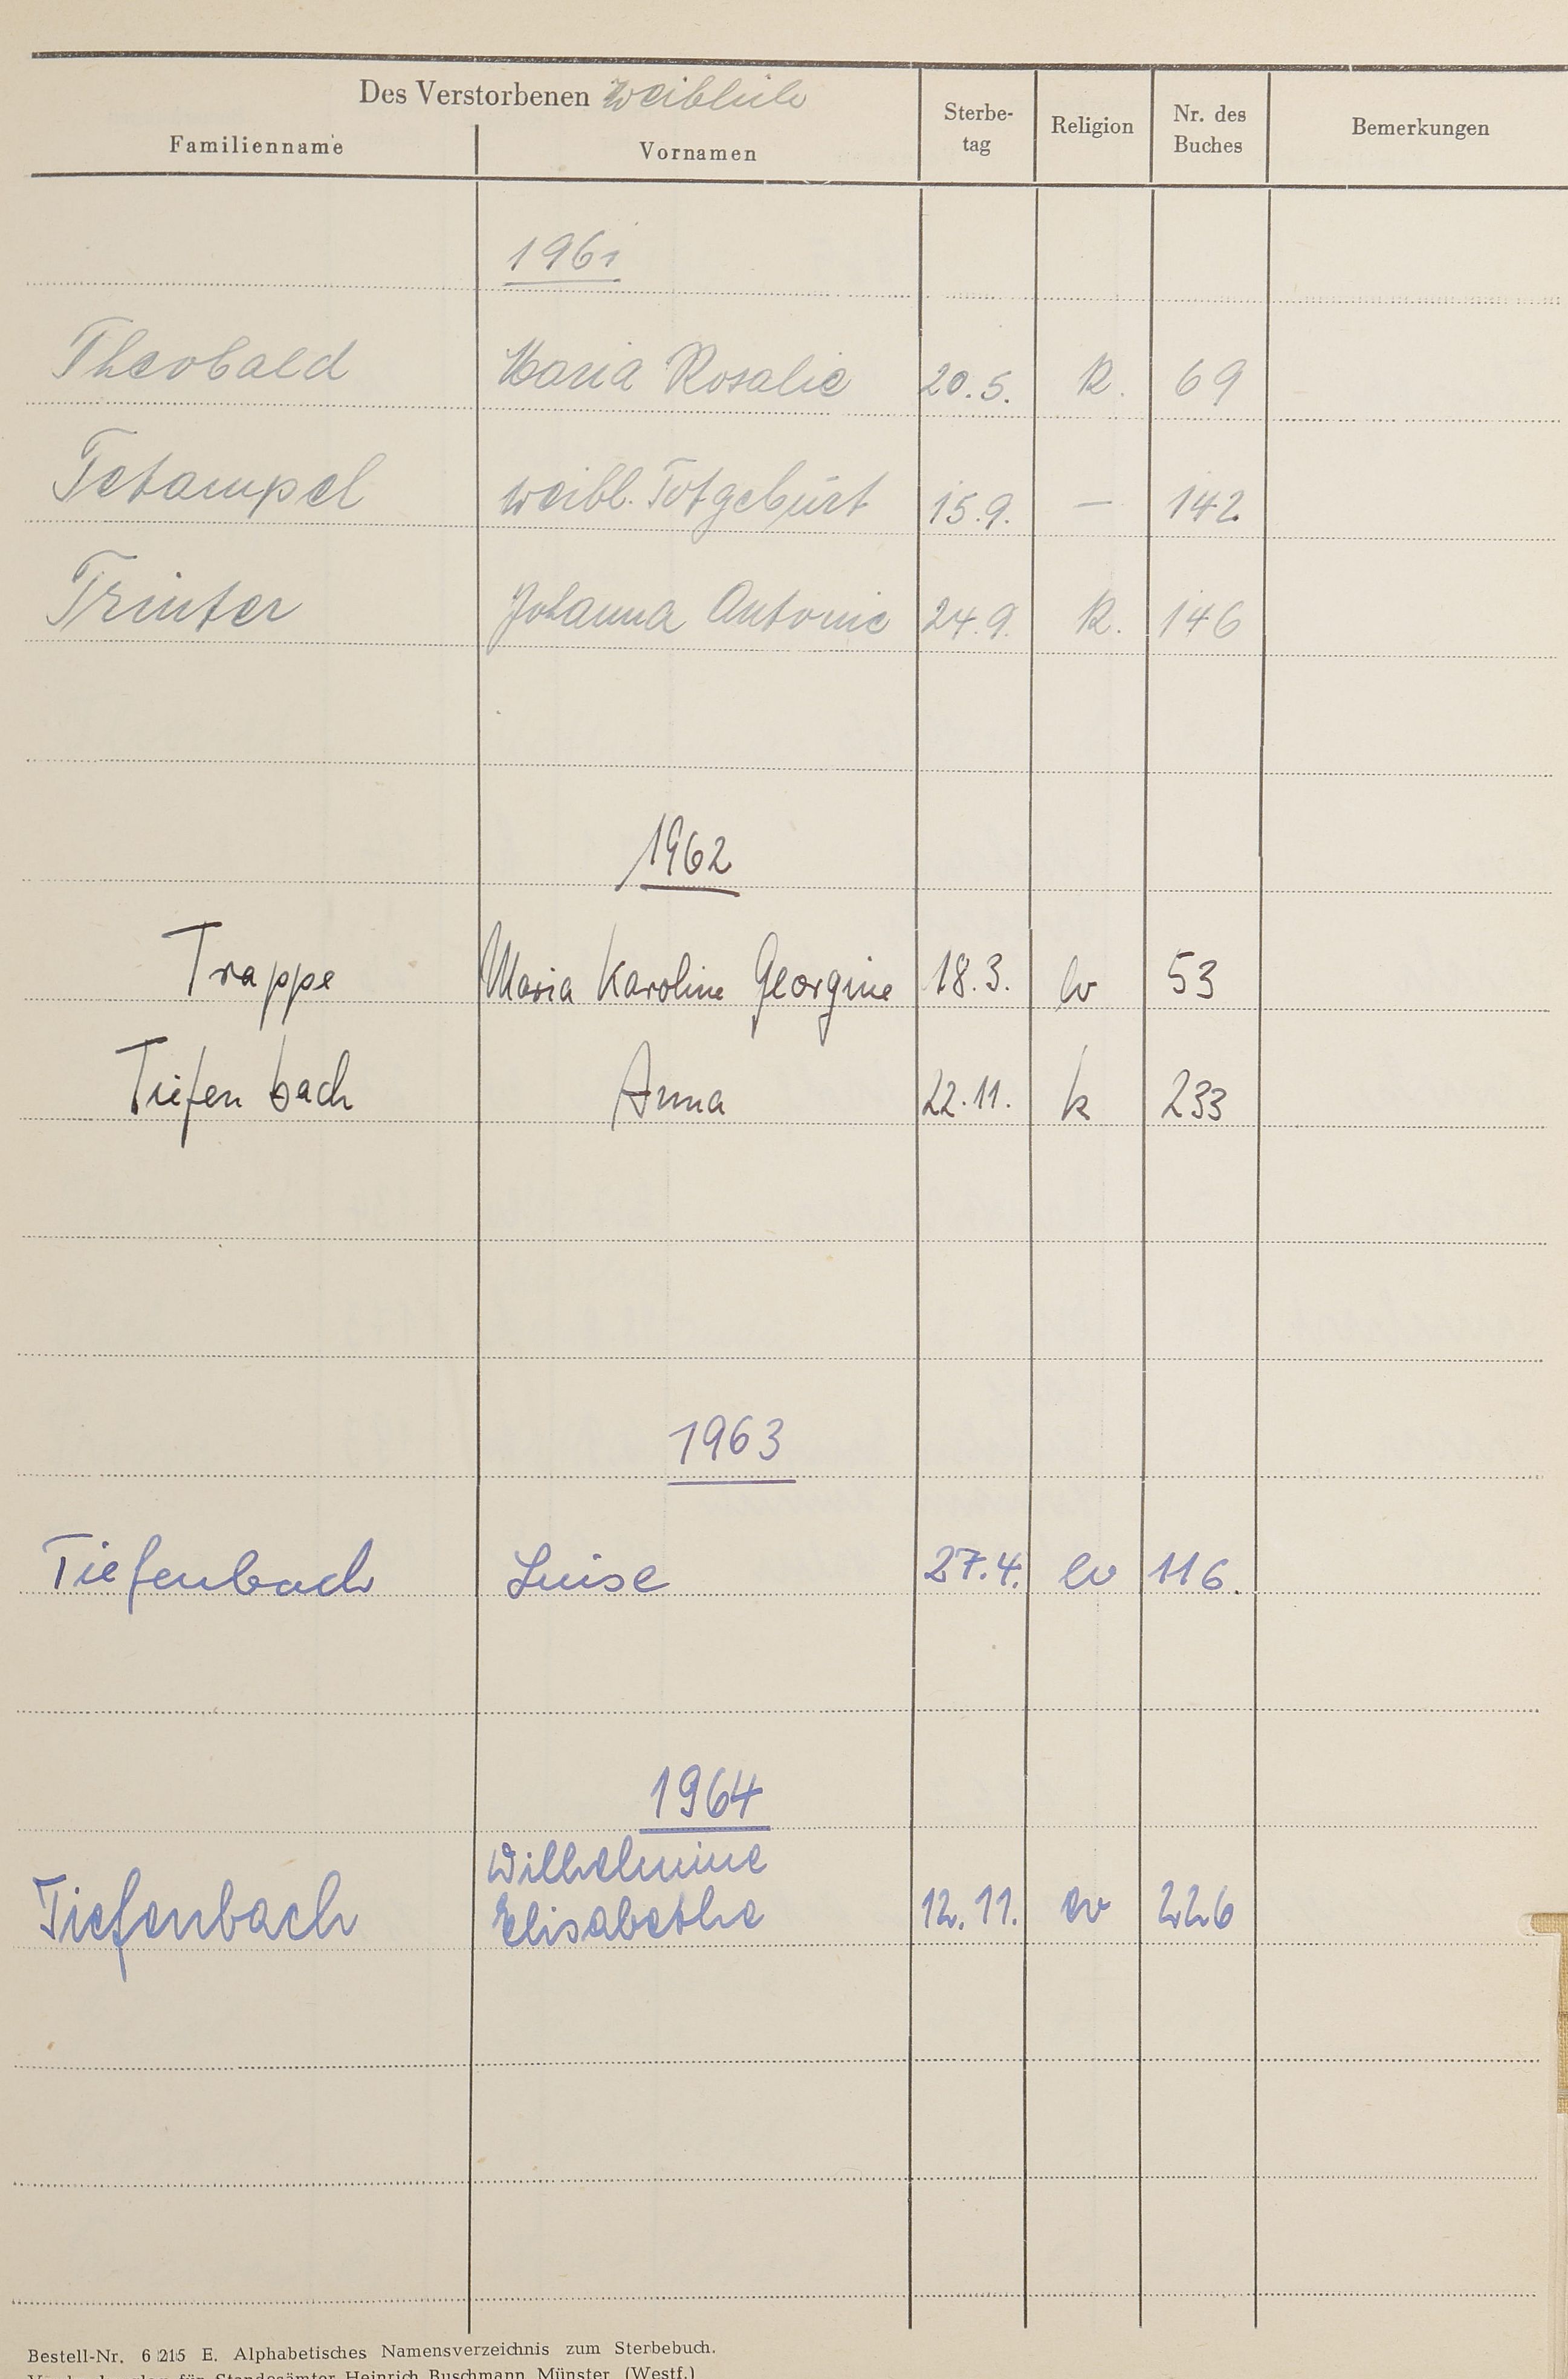 Des Verstorbenen weiblich
Familienname Vornamen Sterbe-tag Religion Nr. des Buches Bemerkungen
1961
Theobald Maria Rosalie 20.5. K. 69
Tetampel weibl. Totgeburt 15.9. — 142
Trinter Johanna Antonie 24.9. K. 146
1962
Trappe Maria Karoline Georgine 18.3. ev 53
Tiefenbach Anna 22.11. k 233
1963
Tiefenbach Luise 27.4. ev 116.
1964
Wilhelmine
Tiefenbach Elisabethe 12.11. ev 226
Bestell-Nr. 6 215 E. Alphabetisches Namensverzeichnis zum Sterbebuch.
für Standesämter Heinrich Buschmann Münster (Westf.)